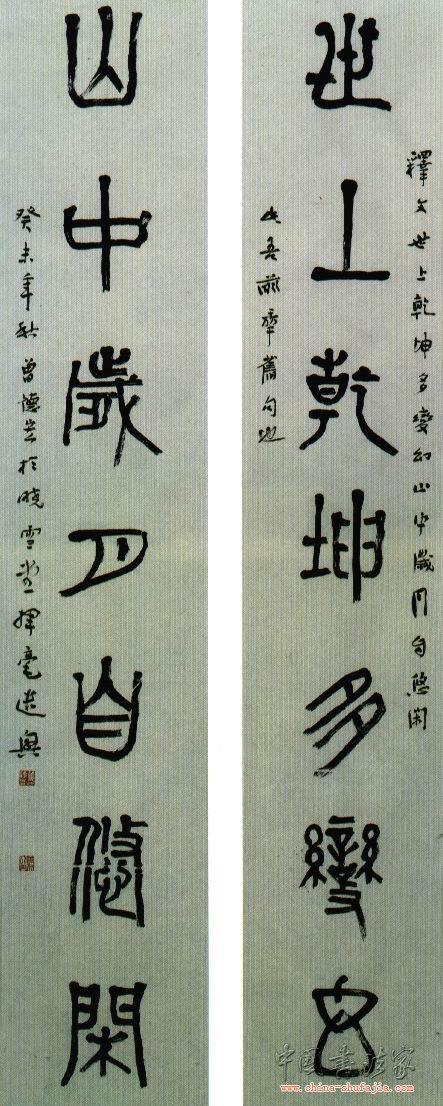 釋文世上乾坤多變幻山中歲月自悠閑
世上乾坤多變幻
此吾舊句也
山中歲月自悠閑
癸未年秋曾德於曉雪堂揮毫遣興
中国书法家
www.china-shufajia.com